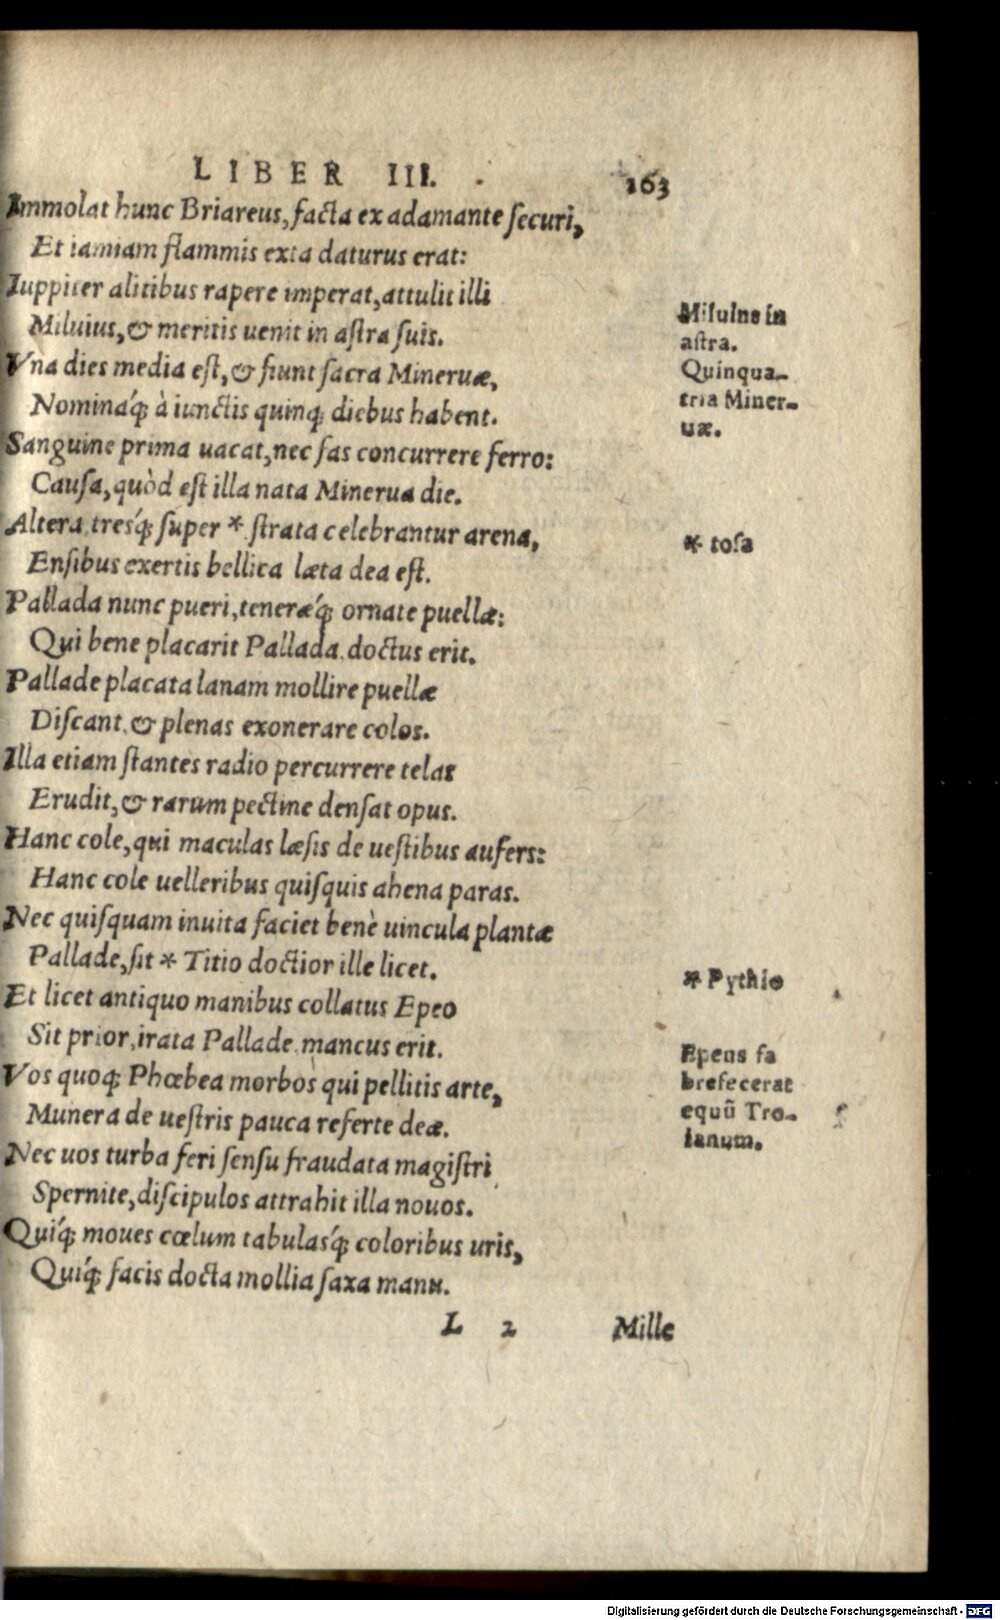 LIBER III. 163
Immolat hunc Briareus, facta ex adamante ſecuri,
Et iamiam flammis exta daturus erat:
Iuppiter alitibus rapere imperat, attulit illi
Miluius, & meritis uenit in aſtra ſuis.
Miluius in
aſtra.
Vna dies media eſt, & fiunt ſacra Mineruæ,
Nominaq́; à iunctis quinq; diebus habent.
Quinqua-
tria Miner-
uæ.
Sanguine prima uacat, nec fas concurrere ferro:
Cauſa, quòd eſt illa nata Minerua die.
Altera, tresq́; ſuper * ſtrata celebrantur arena,
* toſa
Enſibus exertis bellica læta dea eſt.
Pallada nunc pueri, teneræq́; ornate puellæ:
Qui bene placarit Pallada, doctus erit.
Pallade placata lanam mollire puellæ
Diſcant, & plenas exonerare colos.
Illa etiam ſtantes radio percurrere telas
Erudit, & rarum pectine denſat opus.
Hanc cole, qui maculas læſis de ueſtibus aufers:
Hanc cole uelleribus quiſquis ahena paras.
Nec quiſquam inuita faciet benè uincula plantæ
Pallade, ſit * Titio doctior ille licet.
* Pythio
Et licet antiquo manibus collatus Epeo
Sit prior, irata Pallade mancus erit.
Epeus fa
brefecerat
equũ Tro-
ianum.
Vos quoq; Phœbea morbos qui pellitis arte,
Munera de ueſtris pauca referte deæ.
Nec uos turba feri ſenſu fraudata magiſtri
Spernite, diſcipulos attrahit illa nouos.
Quiq́; moues cœlum tabulasq́; coloribus uris,
Quiq́; facis docta mollia ſaxa manu.
L 2 Mille
Digitalisierung gefördert durch die Deutsche Forschungsgemeinschaft - DFG